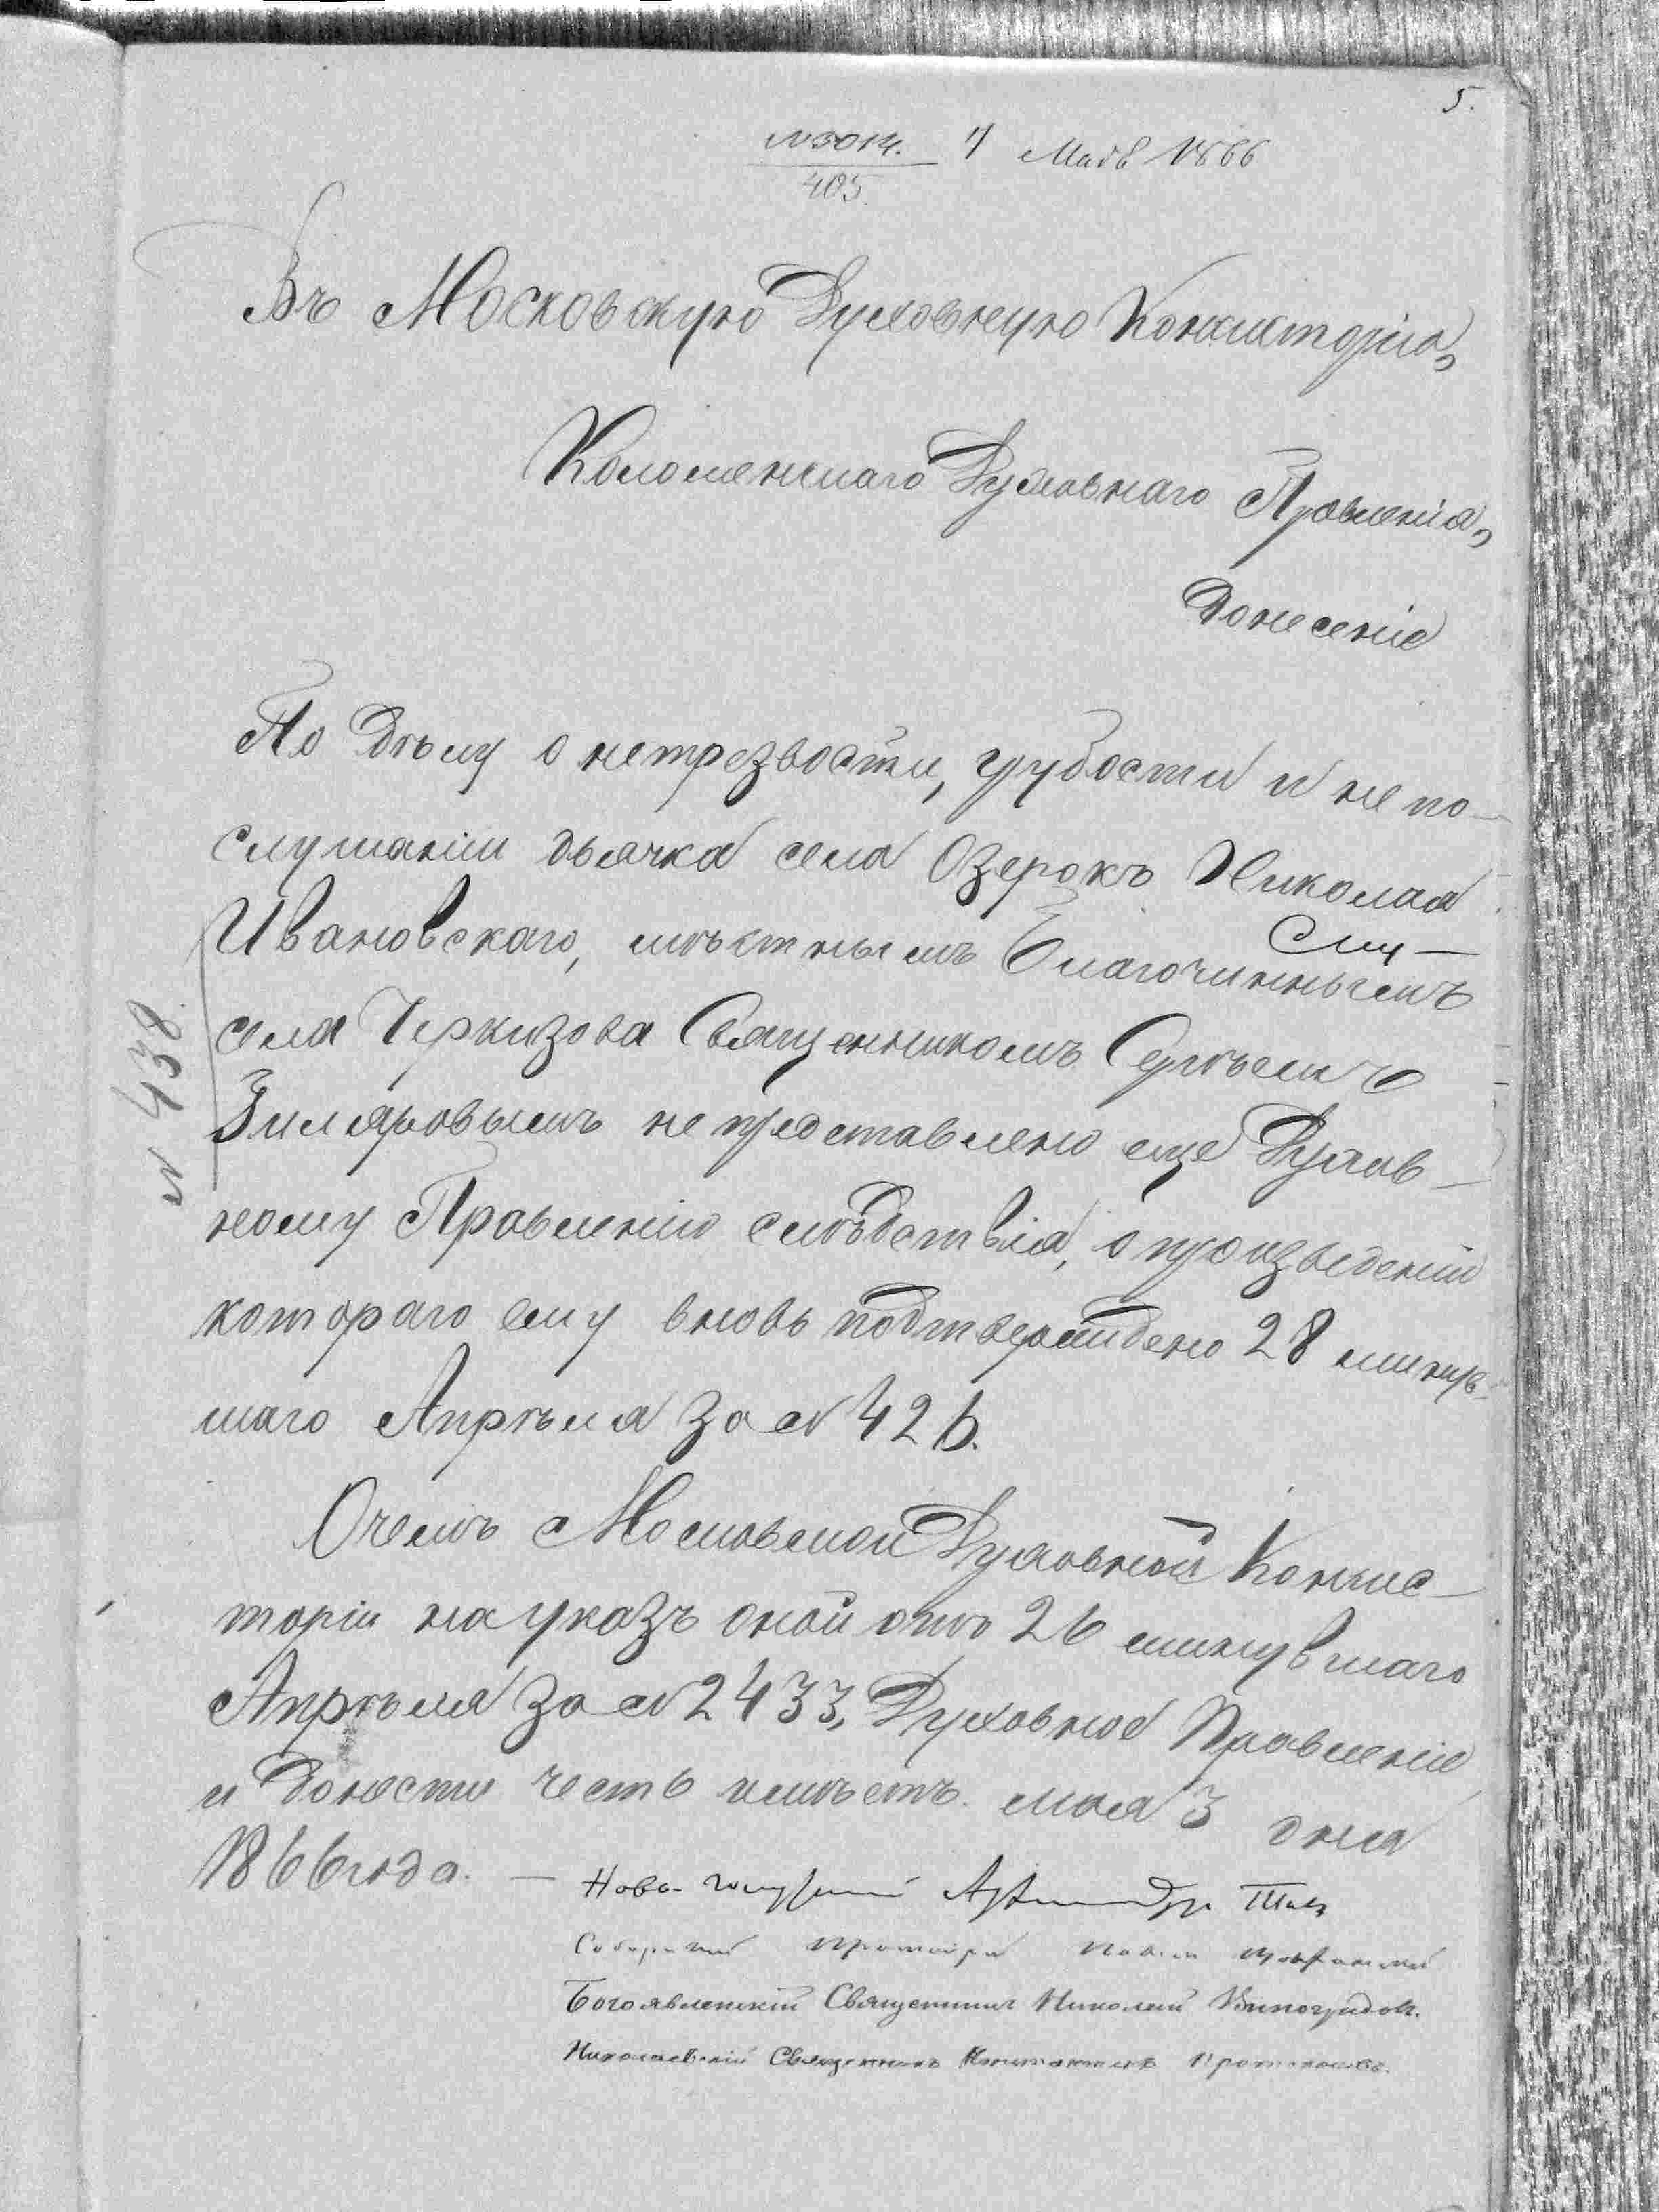 5.
N 3014. 4 Мая 1866
405.
Въ Московскую Духовную Консисторію,
Коломенскаго Духовнаго Правленія,
Донесеніе
По дѣлу о нетрезвости, грубости и не по-
слушаніи дьячка села Озерокъ Николая
Ивановскаго, мѣстнымъ Благочиннымъ
села Черкизова Священникомъ Сергѣемъ
Зиляровымъ не представлено еще Духов-
ному Правленію слѣдствія, о произведеніи
котораго ему вновь подтверждено 28 минув-
шаго Апрѣля за N 426.
N 438.
О чемъ Московской Духовной Консис-
торіи на указъ оной отъ 26 минувшаго
Апрѣля за N 2433, Духовное Правленіе
и донести честь имѣетъ. мая 3 дня
1866 года. —
Ново-Голутвинскій Архимандритъ
Соборный Протоіерей Павелъ
Богоявленскій Священникъ Николай Виноградовъ.
Николаевскій Священникъ Константинъ Протопоповъ.